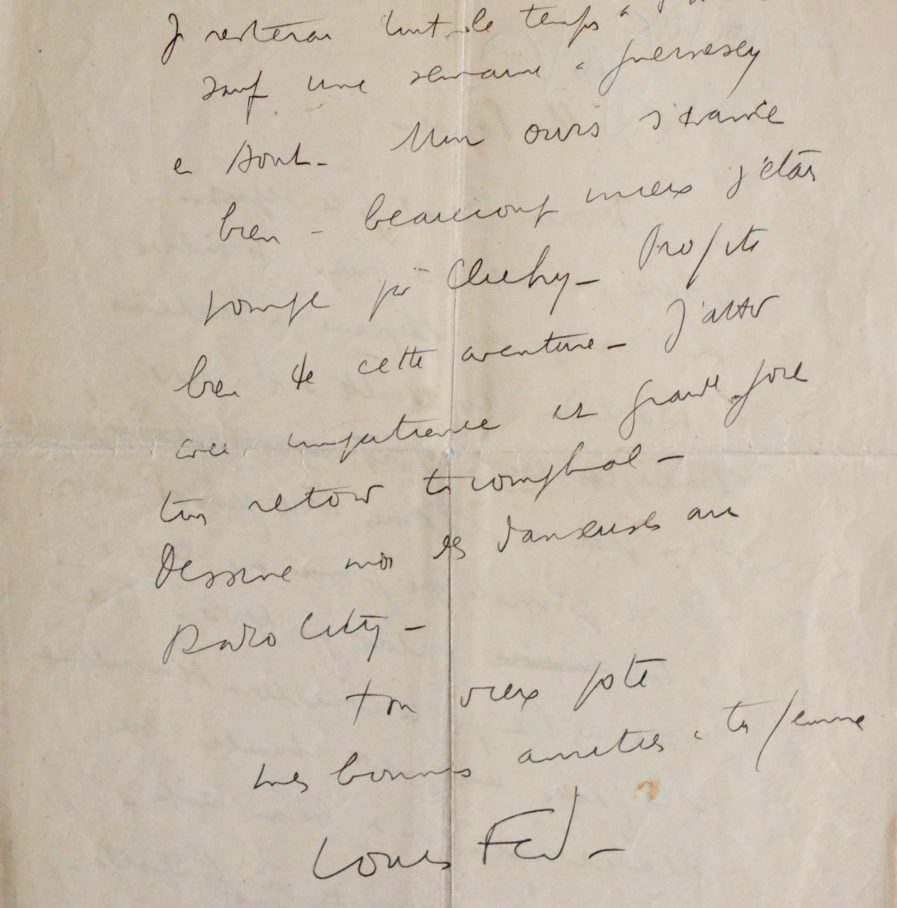 Je resterai tout le temps à
sauf une semaine à Guernesey
en Août - Mon ours s'avance
bien - beaucoup mieux j'étais
pompé par Clichy - Profite
bien de cette aventure - J'attends
avec impatience et grande joie
ton retour triomphal -
Dessine moi des danseuses au
Radio City -
Ton vieux pote
mes bonnes amitiés à ta femme
Louis Ferd -